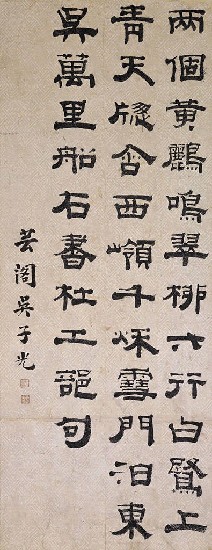 两個黄鸝鳴翠柳六行白鷺上
青天窓含西嶺千秌雪門泊東
吳萬里船右書杜工部句
芸閣吳子光